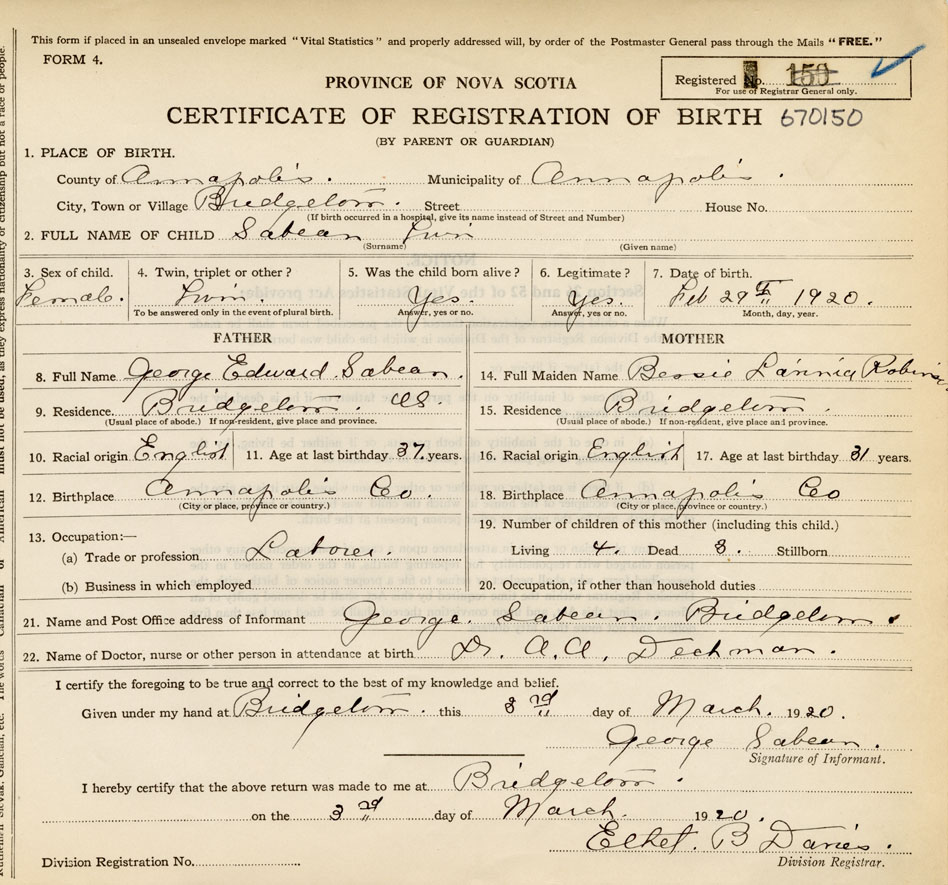 This form if placed in an unsealed envelope marked "Vital Statistics" and properly addressed will, by order of the Postmaster General pass through the Mails "FREE."
FORM 4.
Registered No. 150
For use of Registrar General only.
PROVINCE OF NOVA SCOTIA
CERTIFICATE OF REGISTRATION OF BIRTH 670150
(BY PARENT OR GUARDIAN)
1. PLACE OF BIRTH.
County of Annapolis. Municipality of Annapolis.
City, Town or Village Bridgetown. Street House No.
(If birth occurred in a hospital, give its name instead of Street and Number)
2. FULL NAME OF CHILD Sabean Twin
(Surname) (Given name)
3. Sex of child. 4. Twin, triplet or other? 5. Was the child born alive? 6. Legitimate? 7. Date of birth.
Female. Twin. Yes. Yes. Feb 29th 1920.
To be answered only in the event of plural birth. Answer, yes or no. Answer, yes or no. Month, day, year.
FATHER MOTHER
8. Full Name George Edward Sabean. 14. Full Maiden Name Bessie
9. Residence. Bridgetown. 15. Residence Bridgetown.
(Usual place of abode.) If non-resident, give place and province. (Usual place of abode.) If non-resident, give place and province.
10. Racial origin English 11. Age at last birthday 37. years. 16. Racial origin English 17. Age at last birthday 31 years.
12. Birthplace Annapolis Co. 18. Birthplace Annapolis Co
(City or place, province or country.) (City or place, province or country.)
13. Occupation:— 19. Number of children of this mother (including this child.)
(a) Trade or profession Laborer. Living 4. Dead 3. Stillborn
(b) Business in which employed 20. Occupation, if other than household duties
21. Name and Post Office address of Informant George. Sabean. Bridgetown.
22. Name of Doctor, nurse or other person in attendance at birth Dr. A.A. Dechman.
I certify the foregoing to be true and correct to the best of my knowledge and belief.
Given under my hand at Bridgetown. this 3rd day of March. 1920.
George Sabean.
Signature of Informant.
I hereby certify that the above return was made to me at Bridgetown.
on the 3rd day of March. 1920.
Ethel. B Davies.
Division Registrar.
Division Registration No.